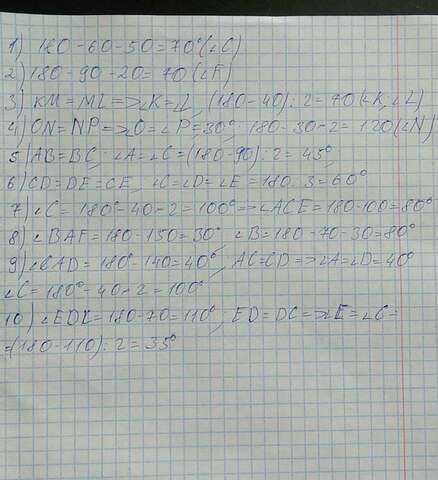 1) 180-60-50=70°(∠C)
2) 180-90-20=70(∠F)
3) KM=ML=>∠K=∠L, (180-40):2=70(∠K;∠L)
4) ON=NP=>∠O=∠P=30°; 180-30·2=120(∠N)
5) AB=BC; ∠A=∠C=(180-90):2=45°
6) CD=DE=CE, ∠C=∠D=∠E=180:3=60°
7) ∠C=180°-40·2=100°=>∠ACE=180-100=80°
8) ∠BAF=180-150=30°, ∠B=180-70-30=80°
9) ∠CAD=180°-140=40°, AC=CD=>∠A=∠D=40°
∠C=180°-40·2=100°
10) ∠EDC=180-70=110°; ED=DC=>∠E=∠C=
=(180-110):2=35°